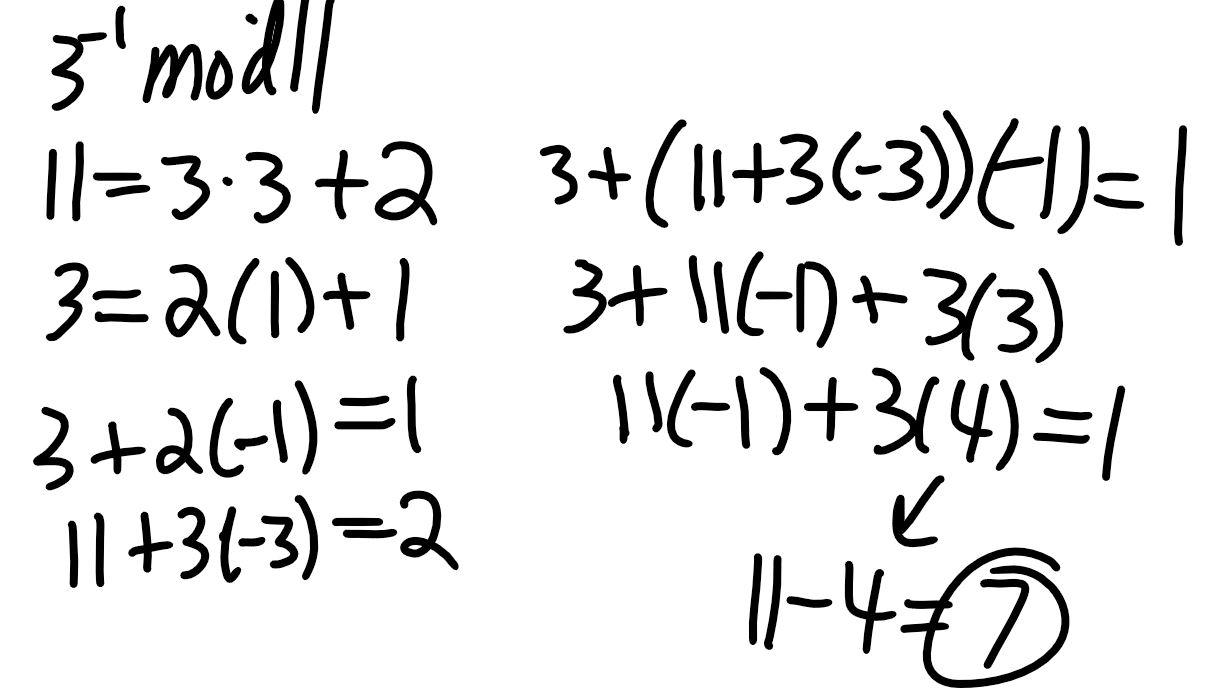 3⁻¹ mod 11
11 = 3 · 3 + 2
3 = 2(1) + 1
3 + 2(-1) = 1
11 + 3(-3) = 2
3 + (11 + 3(-3))(-1) = 1
3 + 11(-1) + 3(3)
11(-1) + 3(4) = 1
↙
11 - 4 = 7